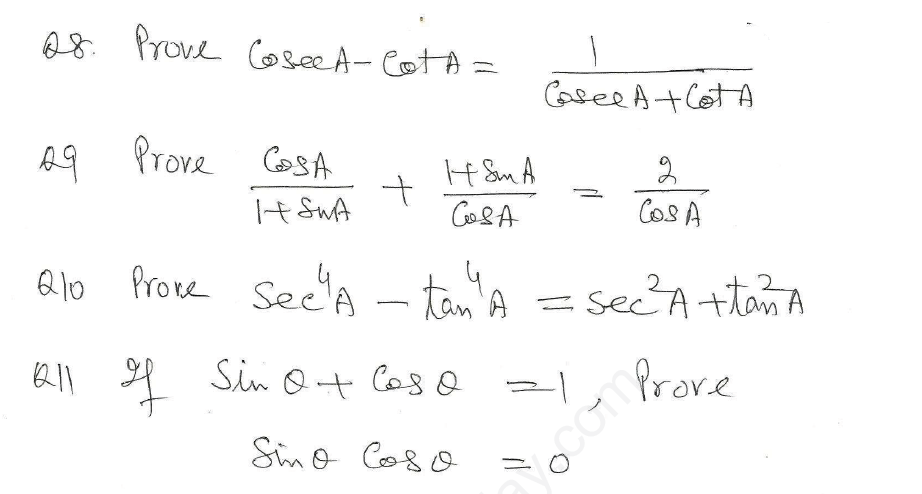 Q8. Prove CosecA - CotA = 1 / CosecA + CotA
Q9 Prove CosA / 1 + SinA + 1 + SinA / CosA = 2 / CosA
Q10 Prove sec⁴A - tan⁴A = sec²A + tan²A
Q11 If Sin θ + Cos θ = 1, Prove
Sin θ Cos θ = 0
ay.com